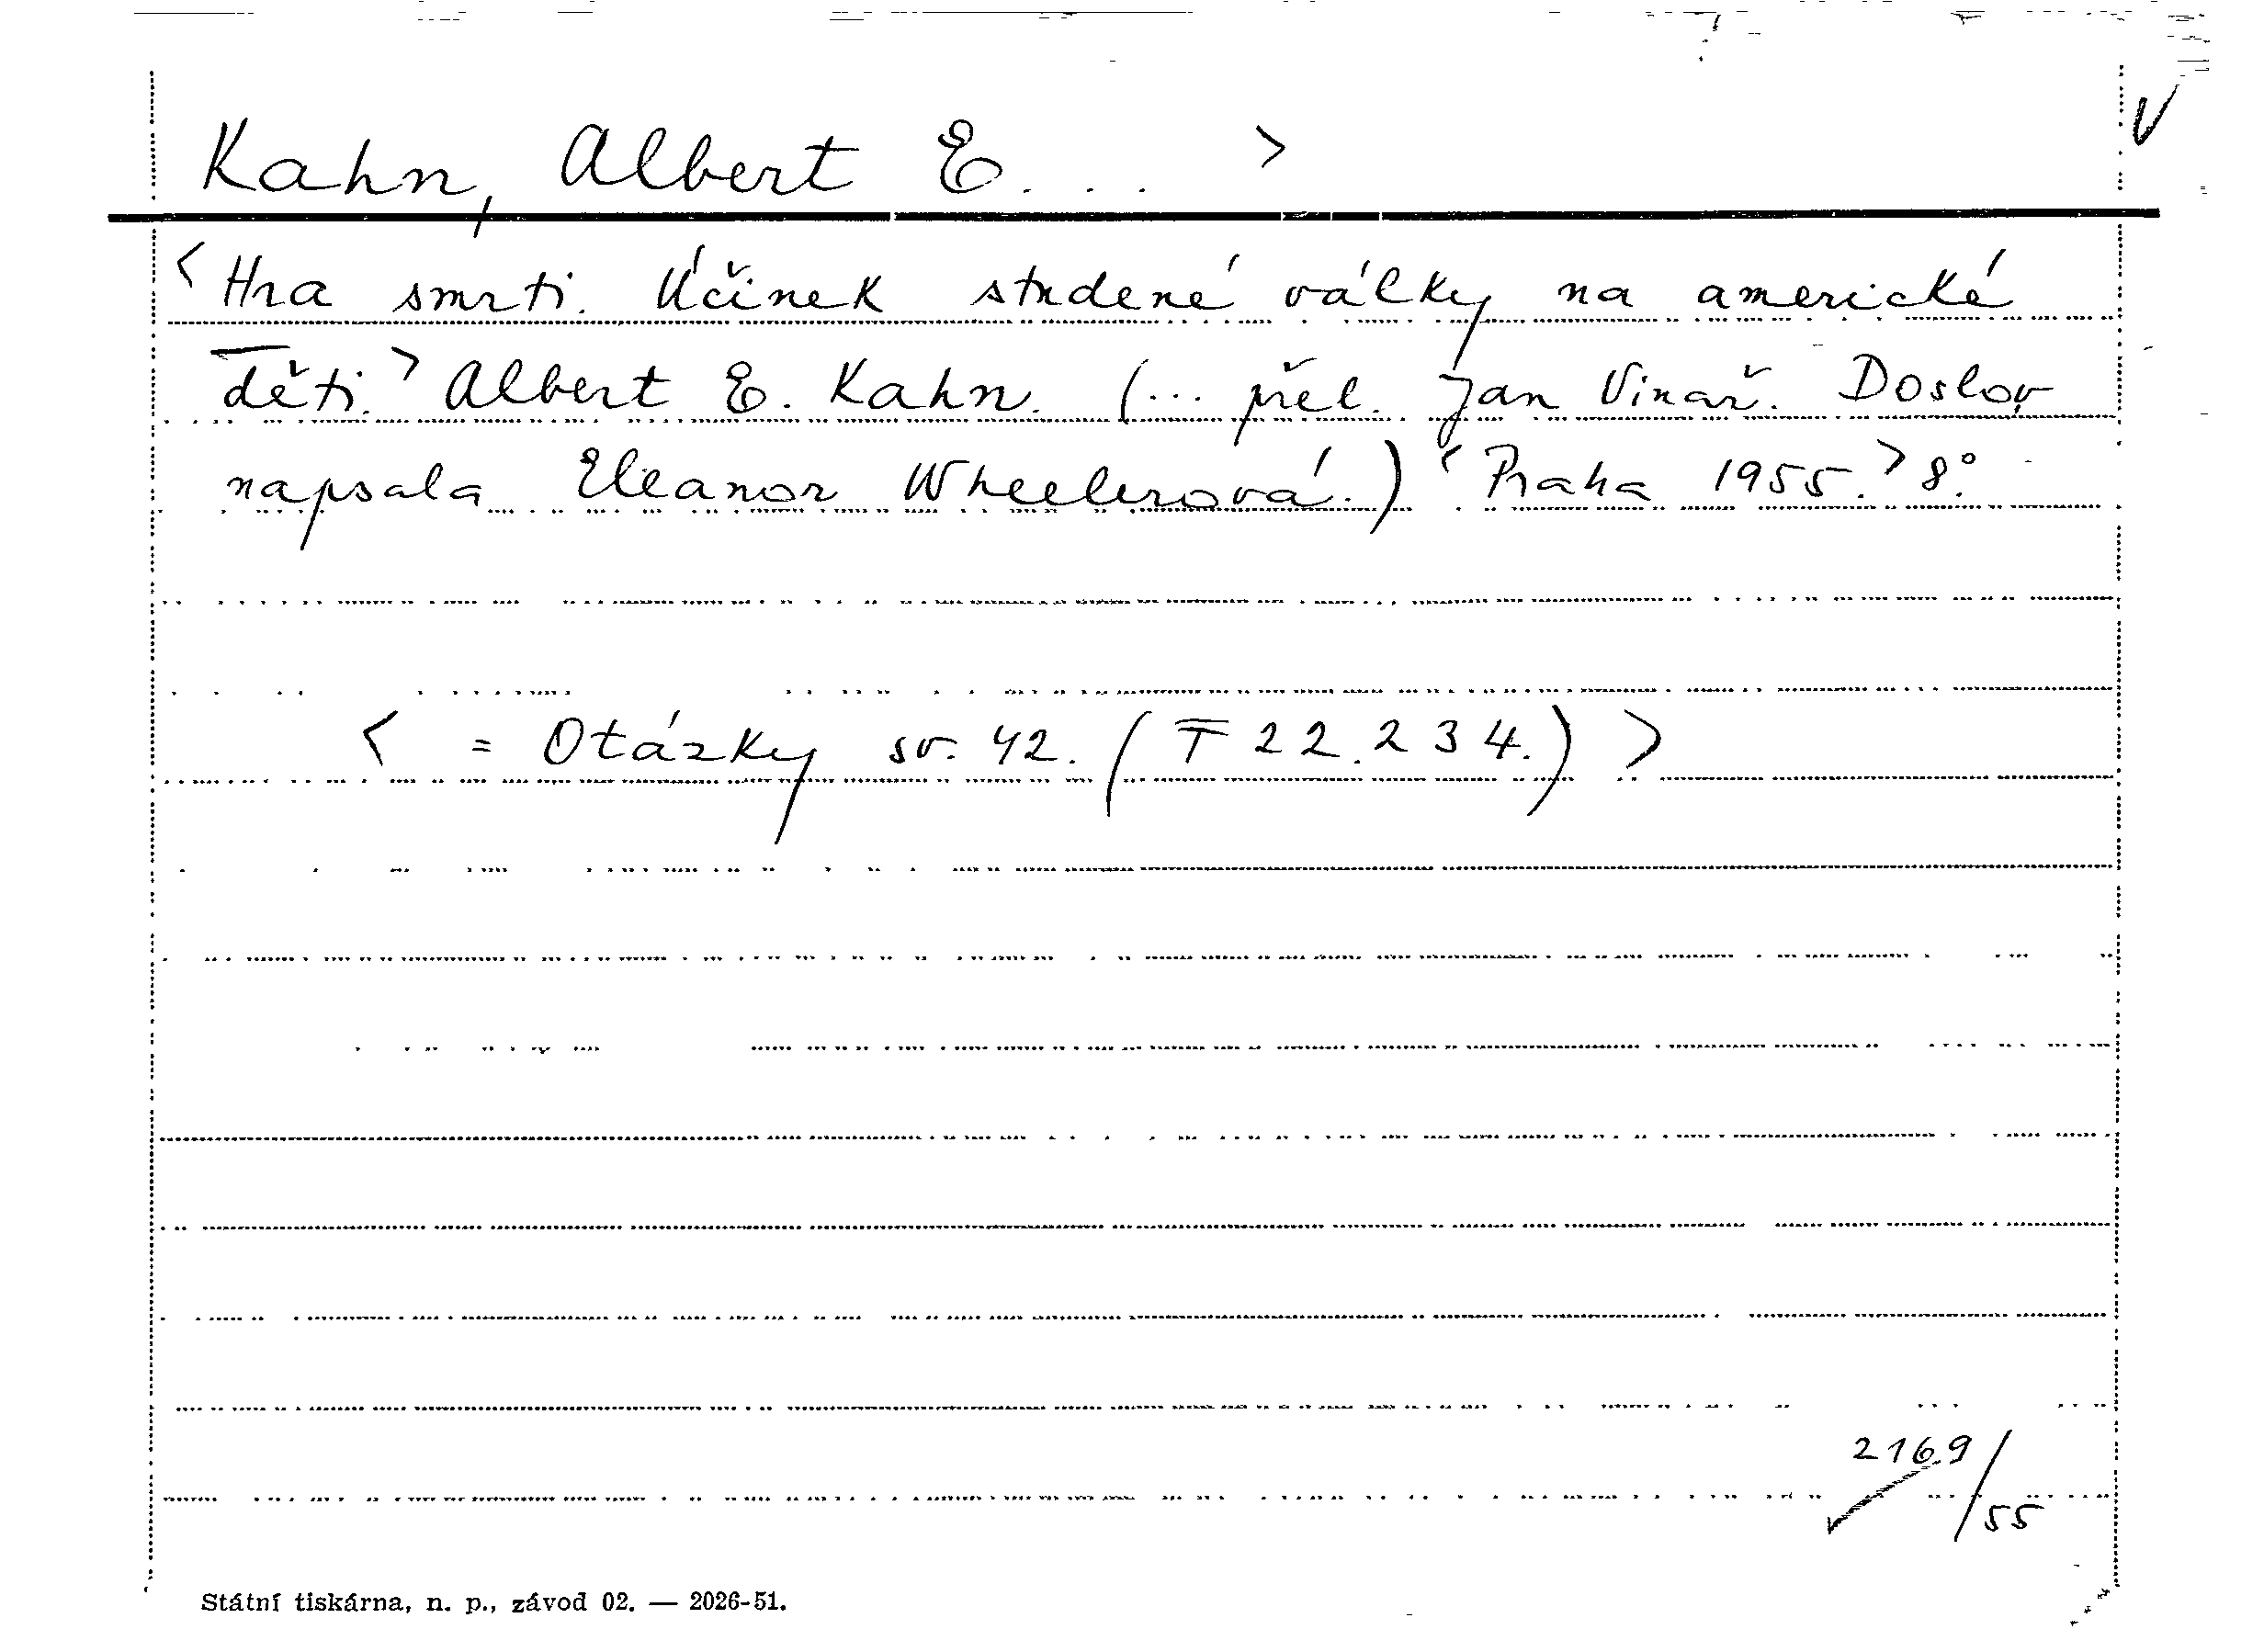 Kahn, Albert E. . . >
<Hra smrti. Účinek studené války na americké
děti.> Albert E. Kahn. (... přel. Jan Vinař. Doslov
napsala Eleanor Wheelerová.) <Praha 1955.> 8°.
< = Otázky sv. 42. (T 22.234.) >
2169/55
Státní tiskárna, n. p., závod 02. — 2026-51.